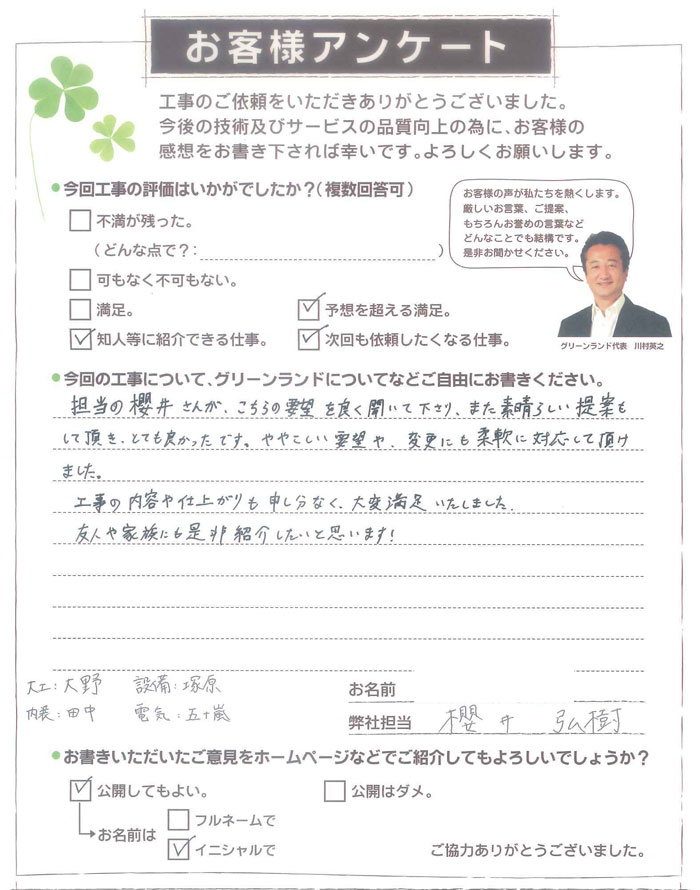 お客様アンケート
工事のご依頼をいただきありがとうございました。
今後の技術及びサービスの品質向上の為に、お客様の
感想をお書き下されば幸いです。よろしくお願いします。
●今回工事の評価はいかがでしたか?(複数回答可)
不満が残った。
(どんな点で?: )
可もなく不可もない。
満足。
予想を超える満足。
知人等に紹介できる仕事。
次回も依頼したくなる仕事。
お客様の声が私たちを熱くします。
厳しいお言葉、ご提案、
もちろんお誉めの言葉など
どんなことでも結構です。
是非お聞かせください。
グリーンランド代表 川村英之
●今回の工事について、グリーンランドについてなどご自由にお書きください。
担当の櫻井さんが、こちらの要望を良く聞いて下さり、また素晴らしい提案も
して頂き、とても良かったです。ややこしい要望や、変更にも柔軟に対応して頂け
ました。
工事の内容や仕上がりも申し分なく、大変満足いたしました。
友人や家族にも是非紹介したいと思います!
大工:大野 設備:塚原
内装:田中 電気:五十嵐
お名前
弊社担当 櫻井 弘樹
●お書きいただいたご意見をホームページなどでご紹介してもよろしいでしょうか?
公開してもよい。
公開はダメ。
お名前は
フルネームで
イニシャルで
ご協力ありがとうございました。